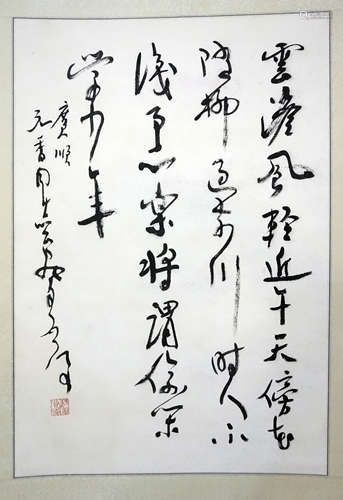 雲澹風輕近午天傍花
隨柳過前川時人不
識予心樂將謂偷閑
學少年
廣順
元香